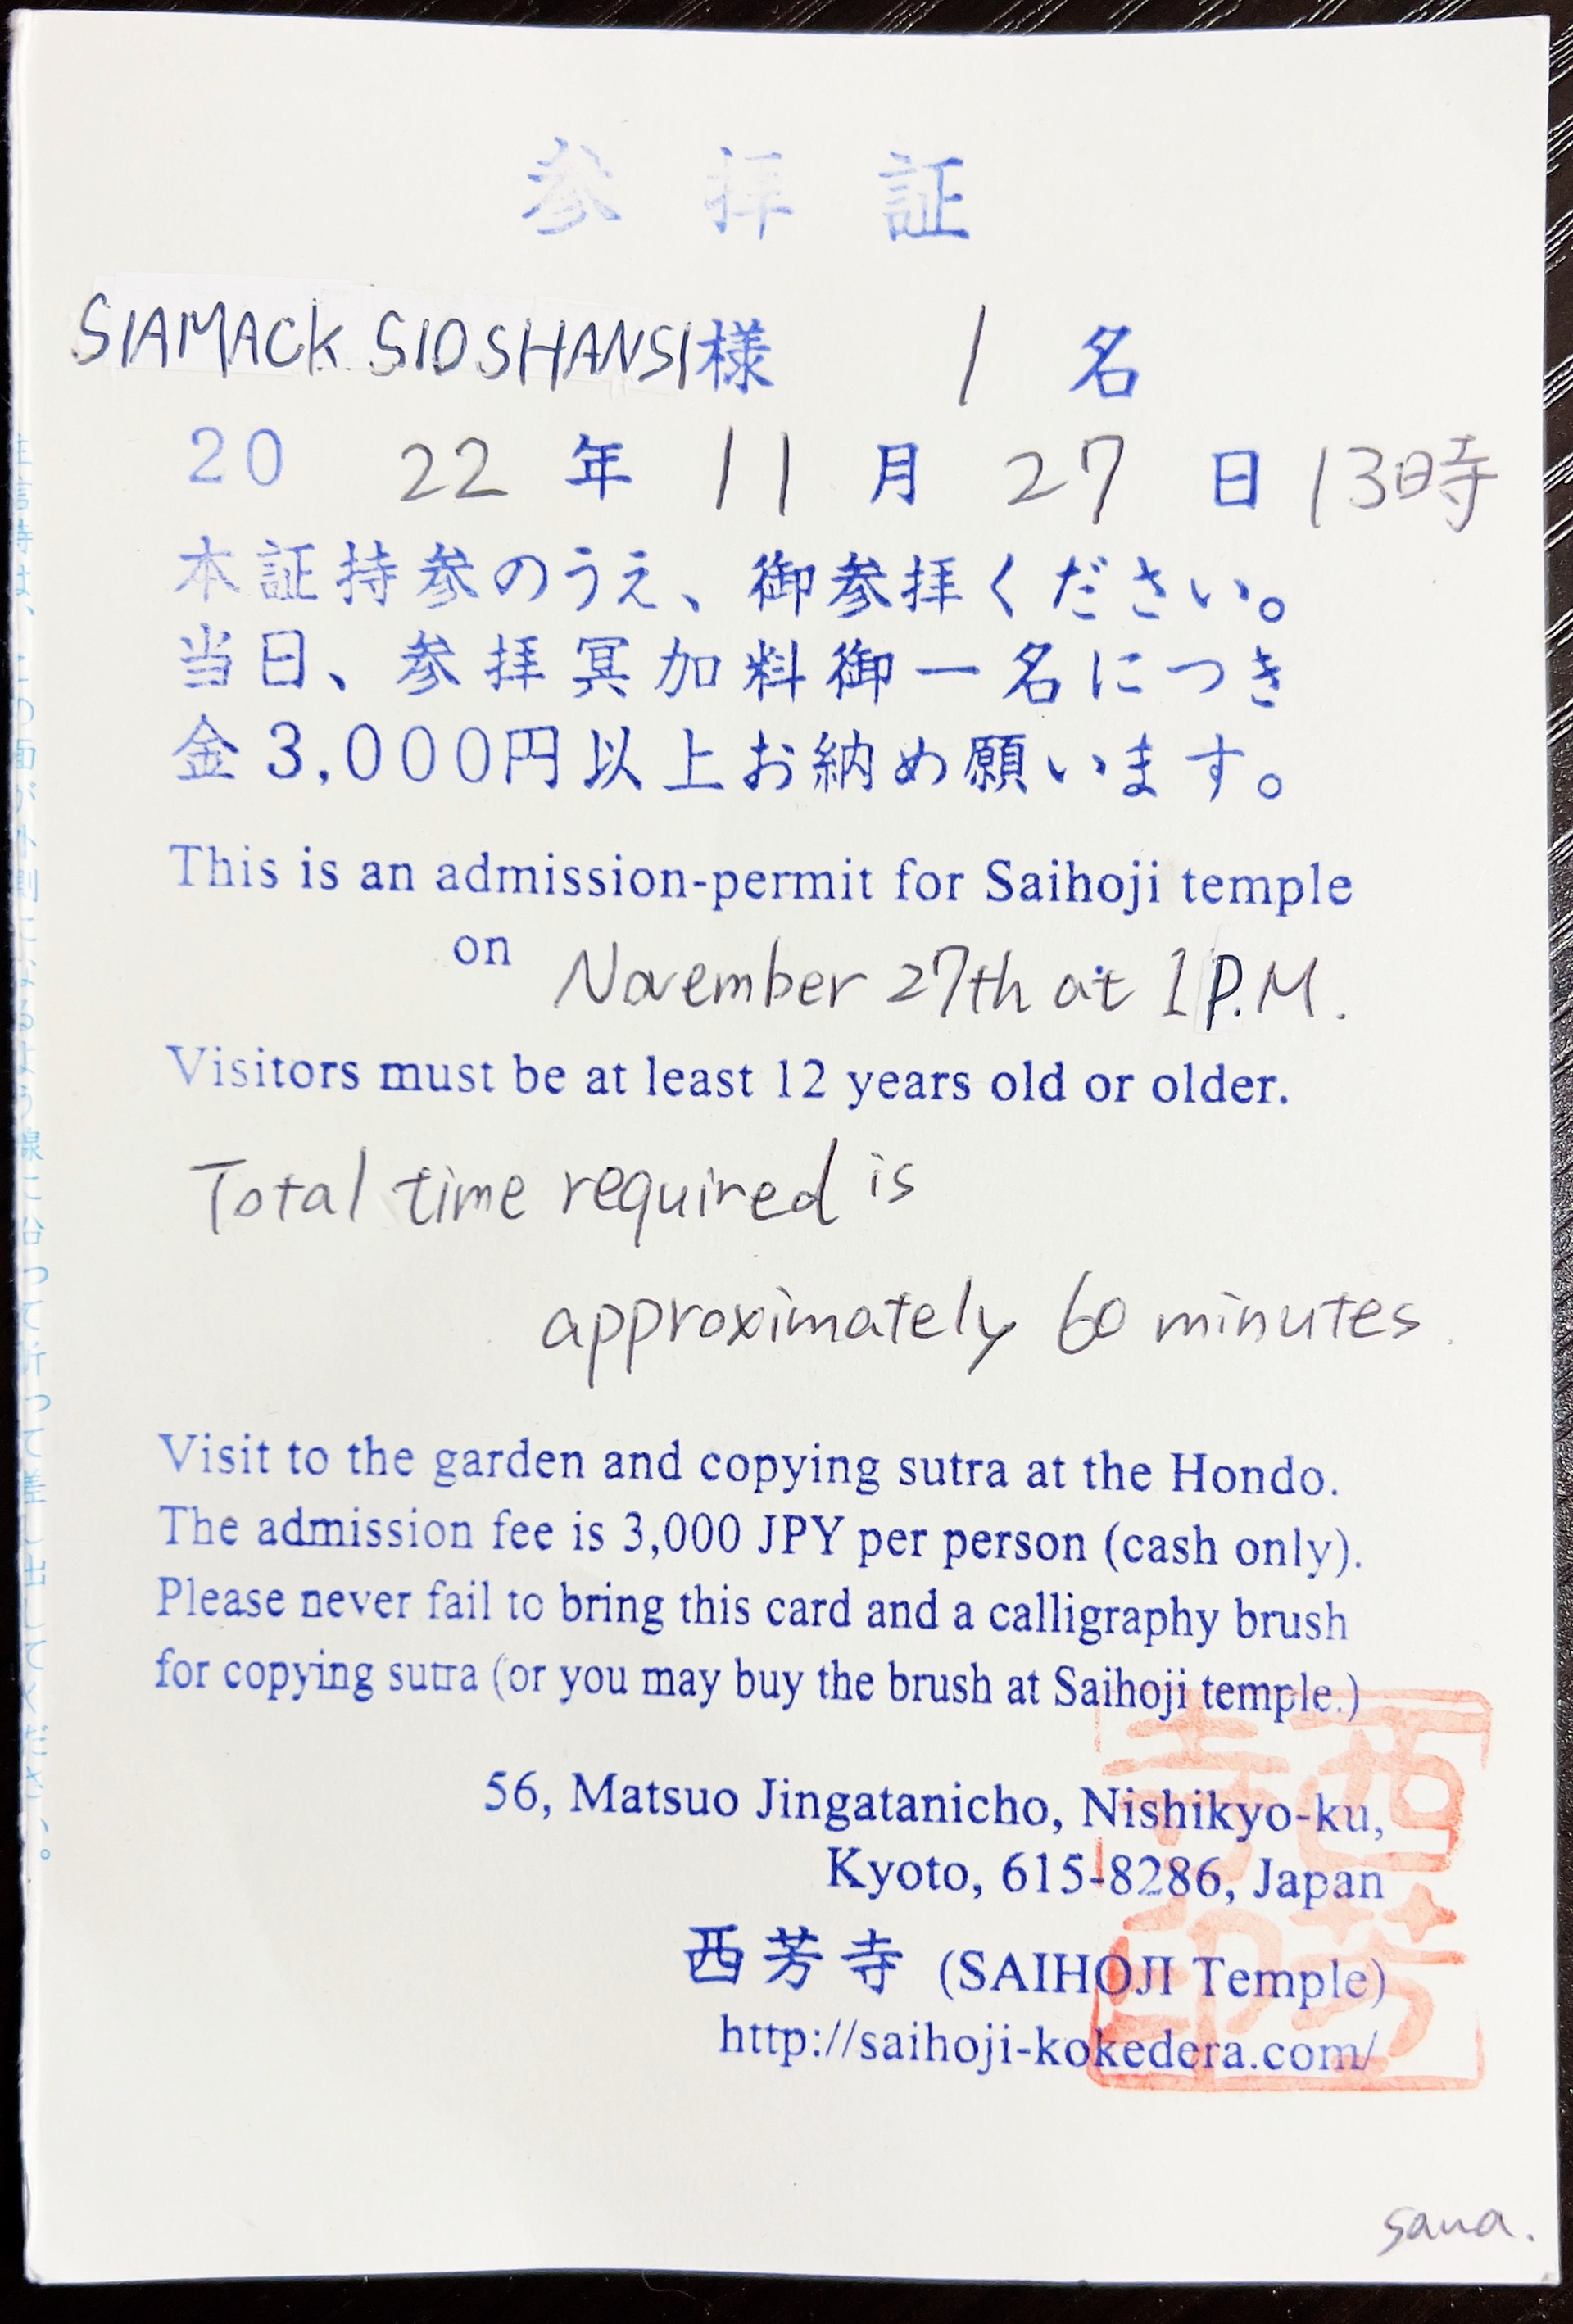 参拝証
SIAMACK SIOSHANSI様 1名
20 22 年 11 月 27 日 13時
本証持参のうえ、御参拝ください。
当日、参拝冥加料御一名につき
金3,000円以上お納め願います。
This is an admission-permit for Saihoji temple
on November 27th at 1 P.M.
Visitors must be at least 12 years old or older.
Total time required is
approximately 60 minutes.
Visit to the garden and copying sutra at the Hondo.
The admission fee is 3,000 JPY per person (cash only).
Please never fail to bring this card and a calligraphy brush
for copying sutra (or you may buy the brush at Saihoji temple.)
56, Matsuo Jingatanicho, Nishikyo-ku,
Kyoto, 615-8286, Japan
西芳寺 (SAIHOJI Temple)
http://saihoji-kokedera.com/
西芳寺印